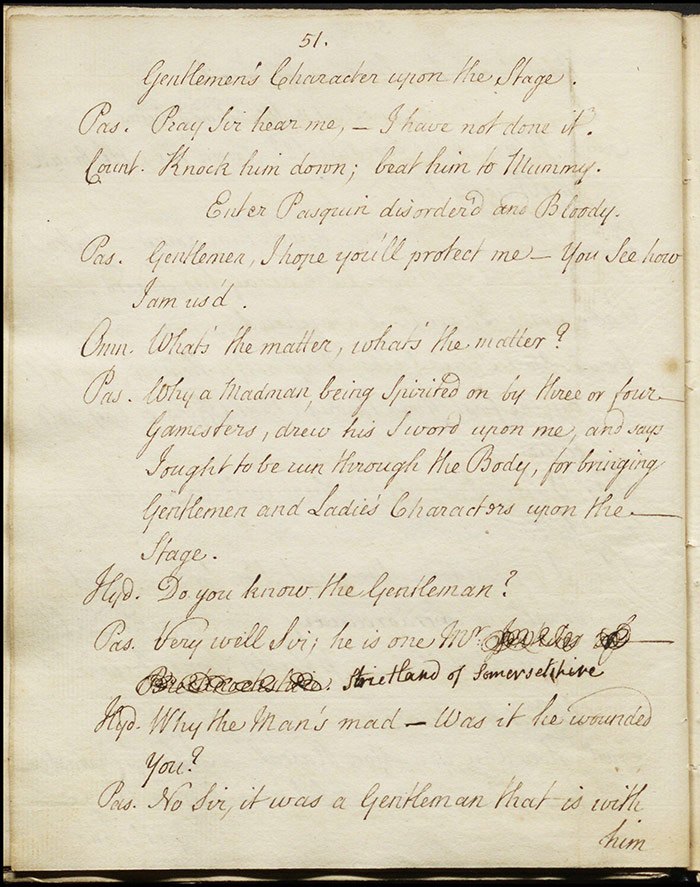 51.
Gentlemen's Character upon the Stage.
Pas. Pray Sir hear me, – I have not done it.
Count. Knock him down; beat him to Mummy.
Enter Pasquin disorder'd and Bloody.
Pas. Gentlemen, I hope you'll protect me – You See how
I am us'd.
Omn. What's the matter, what's the matter?
Pas. Why a Madman, being Spirited on by three or four
Gamesters, drew his Sword upon me, and says
I ought to be run through the Body, for bringing
Gentlemen and Ladie's Characters upon the
Stage.
Hyd. Do you know the Gentleman?
Pas. Very well Sir; he is one Mr.
Strictland of Somersetshire
Hyd. Why the Man's mad – Was it he wounded
You?
Pas. No Sir, it was a Gentleman that is with
him